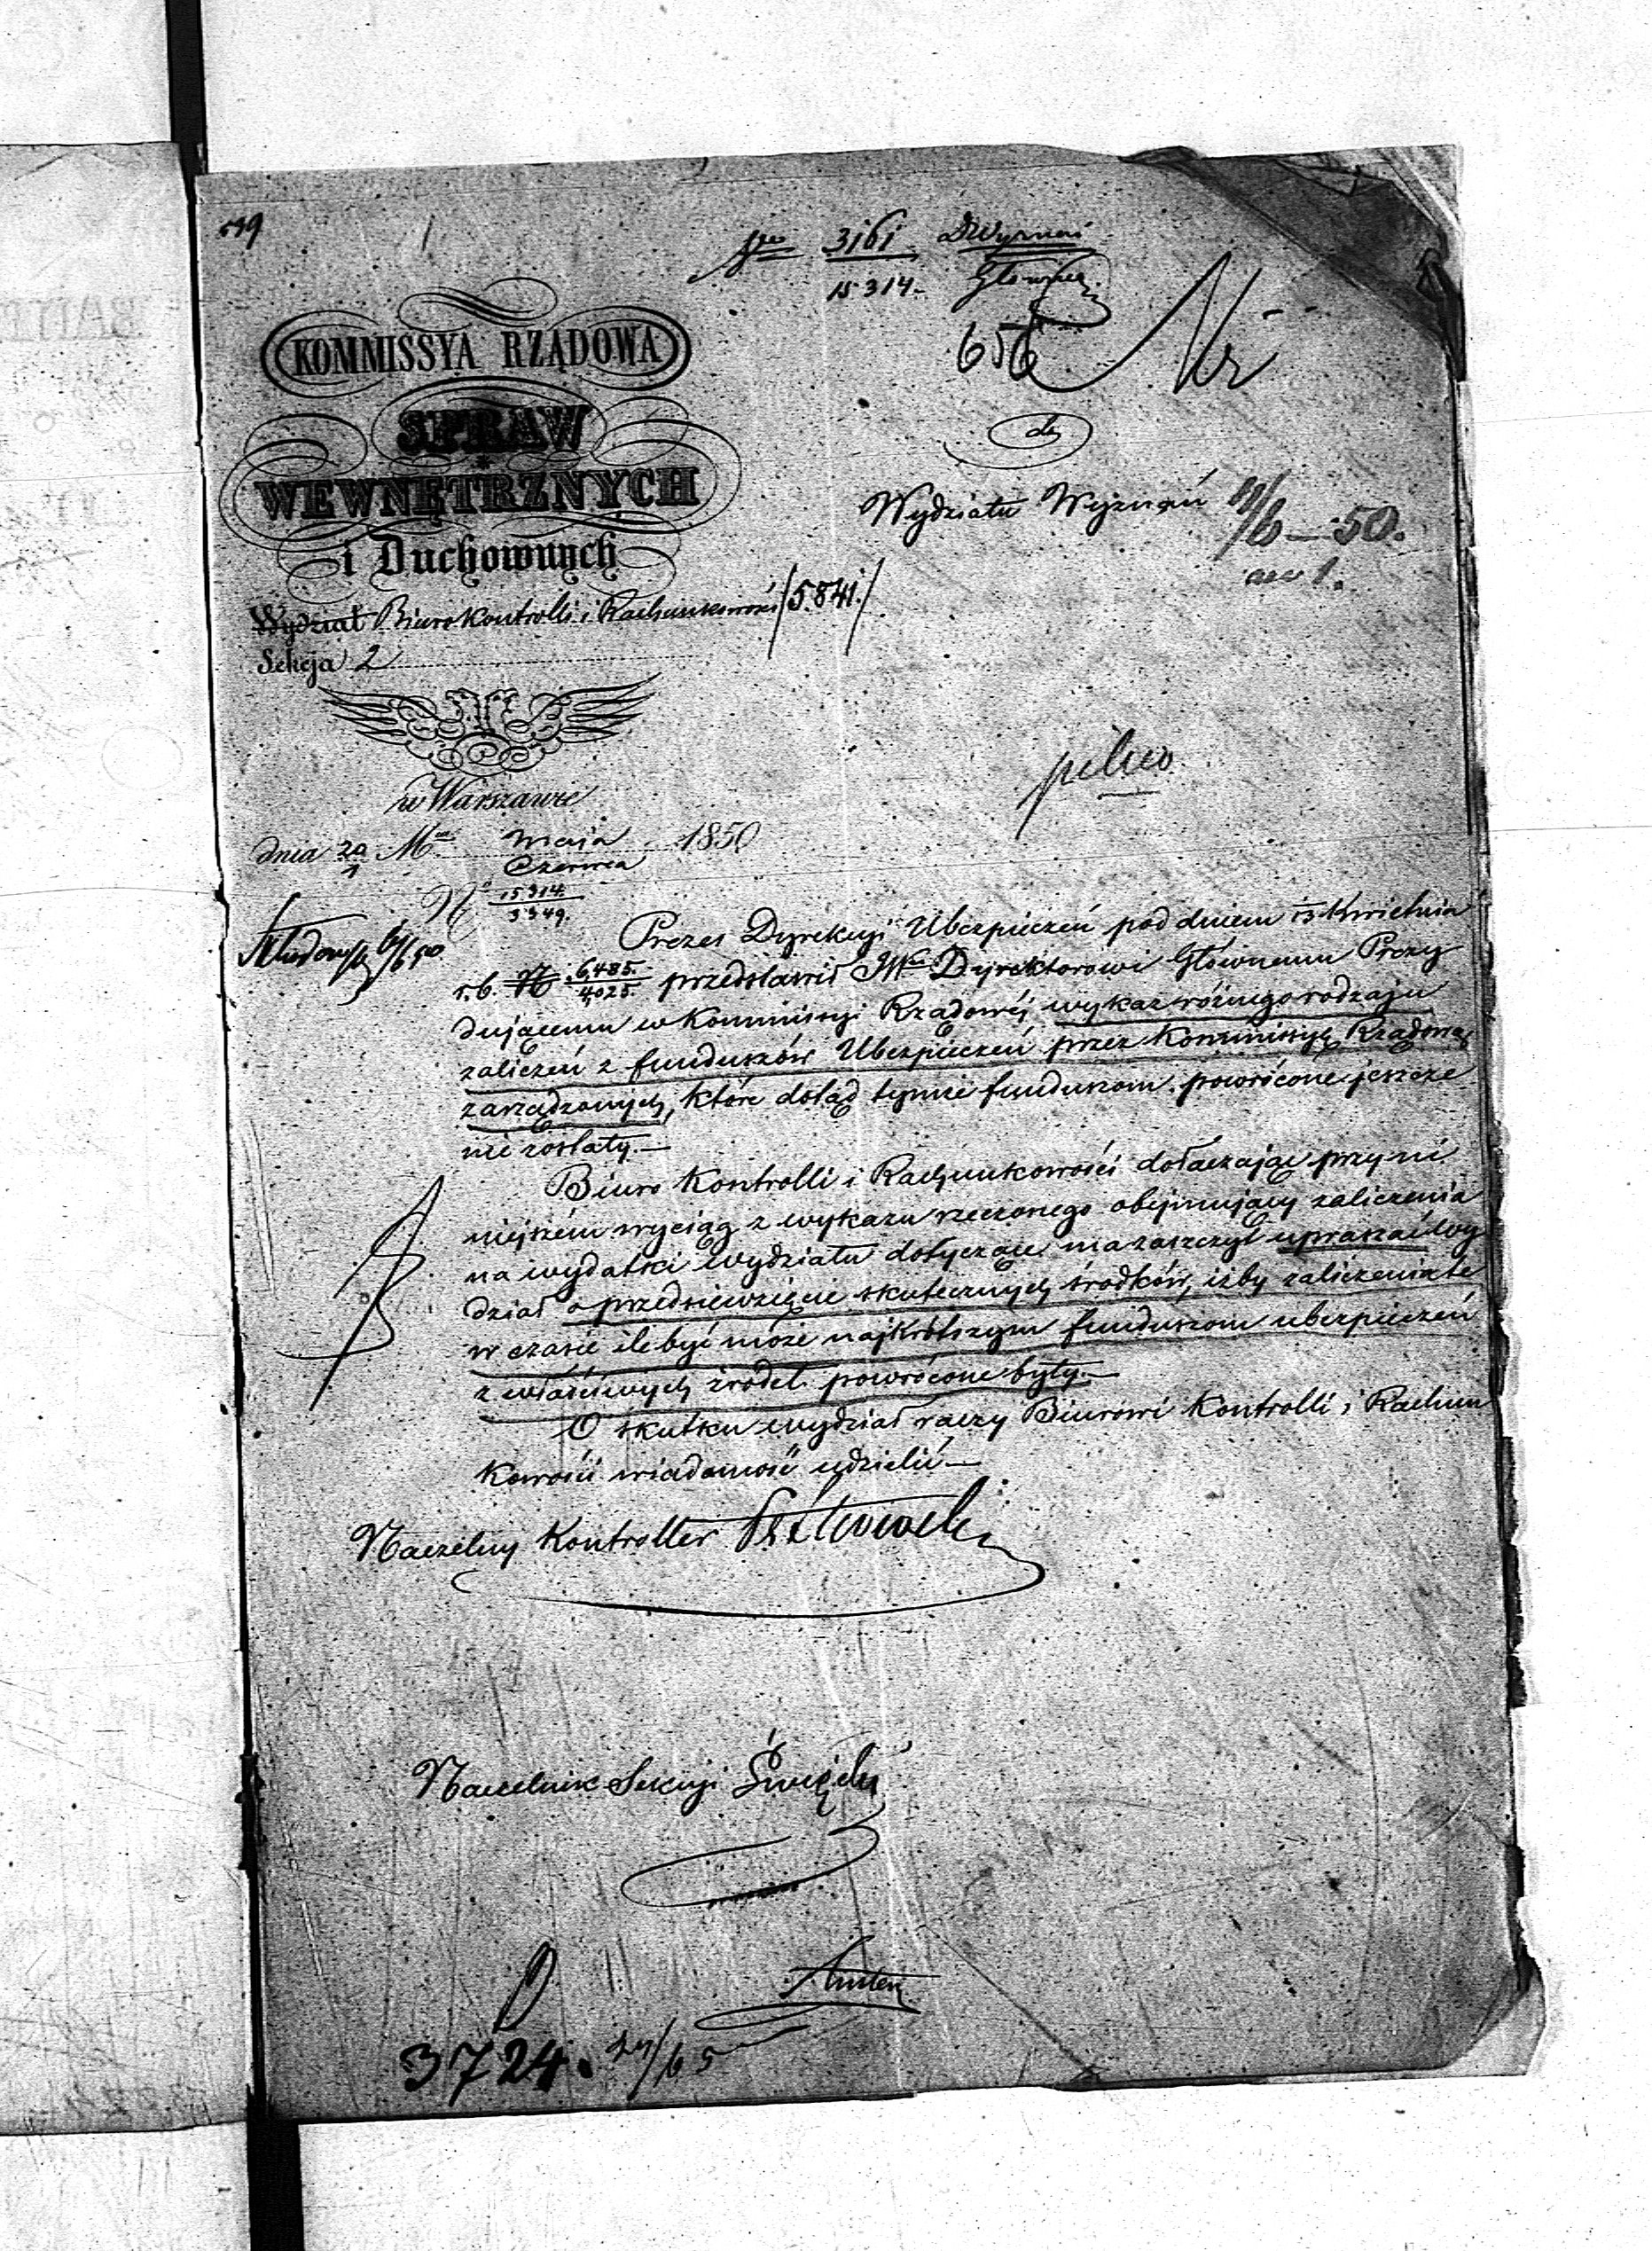 3161
15314.
656
Nr
KOMMISSYA RZĄDOWA
SPRAW
WEWNĘTRZNYCH
i Duchownych
do
Wydziału Wyznań
/6 – 50.
Wydział Biuro Kontrolli i Rachunkowości /5.841./
Sekcja 2
pilno
w Warszawie
dnia 20/1 Mca Maja/Czerwca 1850
N 15314./3349.
Prezes Dyrekcyi Ubezpieczeń pod dniem 13 Kwietnia
r.b. N 6,485./4,025. przedstawił JW Dyrektorowi Głównemu Prezy
dującemu w Kommissyi Rządowéj wykaz różnego rodzaju
zaliczeń z funduszów Ubezpieczeń przez Kommissyę Rządową
zarządzonych, które dotąd tymże funduszom powrócone jeszcze
nie zostały. —
Biuro Kontrolli i Rachunkowości dołączając przy ni
niejszém wyciąg z wykazu rzeczonego obejmujący zaliczenia
na wydatki Wydziału dotyczące ma zaszczyt upraszać Wy
dział o przedsięwzięcie skutecznych środków, iżby zaliczenia te
w czasie ile być może najkrótszym funduszom ubezpieczeń
z właściwych źródeł powrócone były. —
O skutku Wydział raczy Biurowi Kontrolli i Rachun
kowości wiadomość udzielić —
Naczelny Kontroller
Naczelnik Sekcyi
3724.